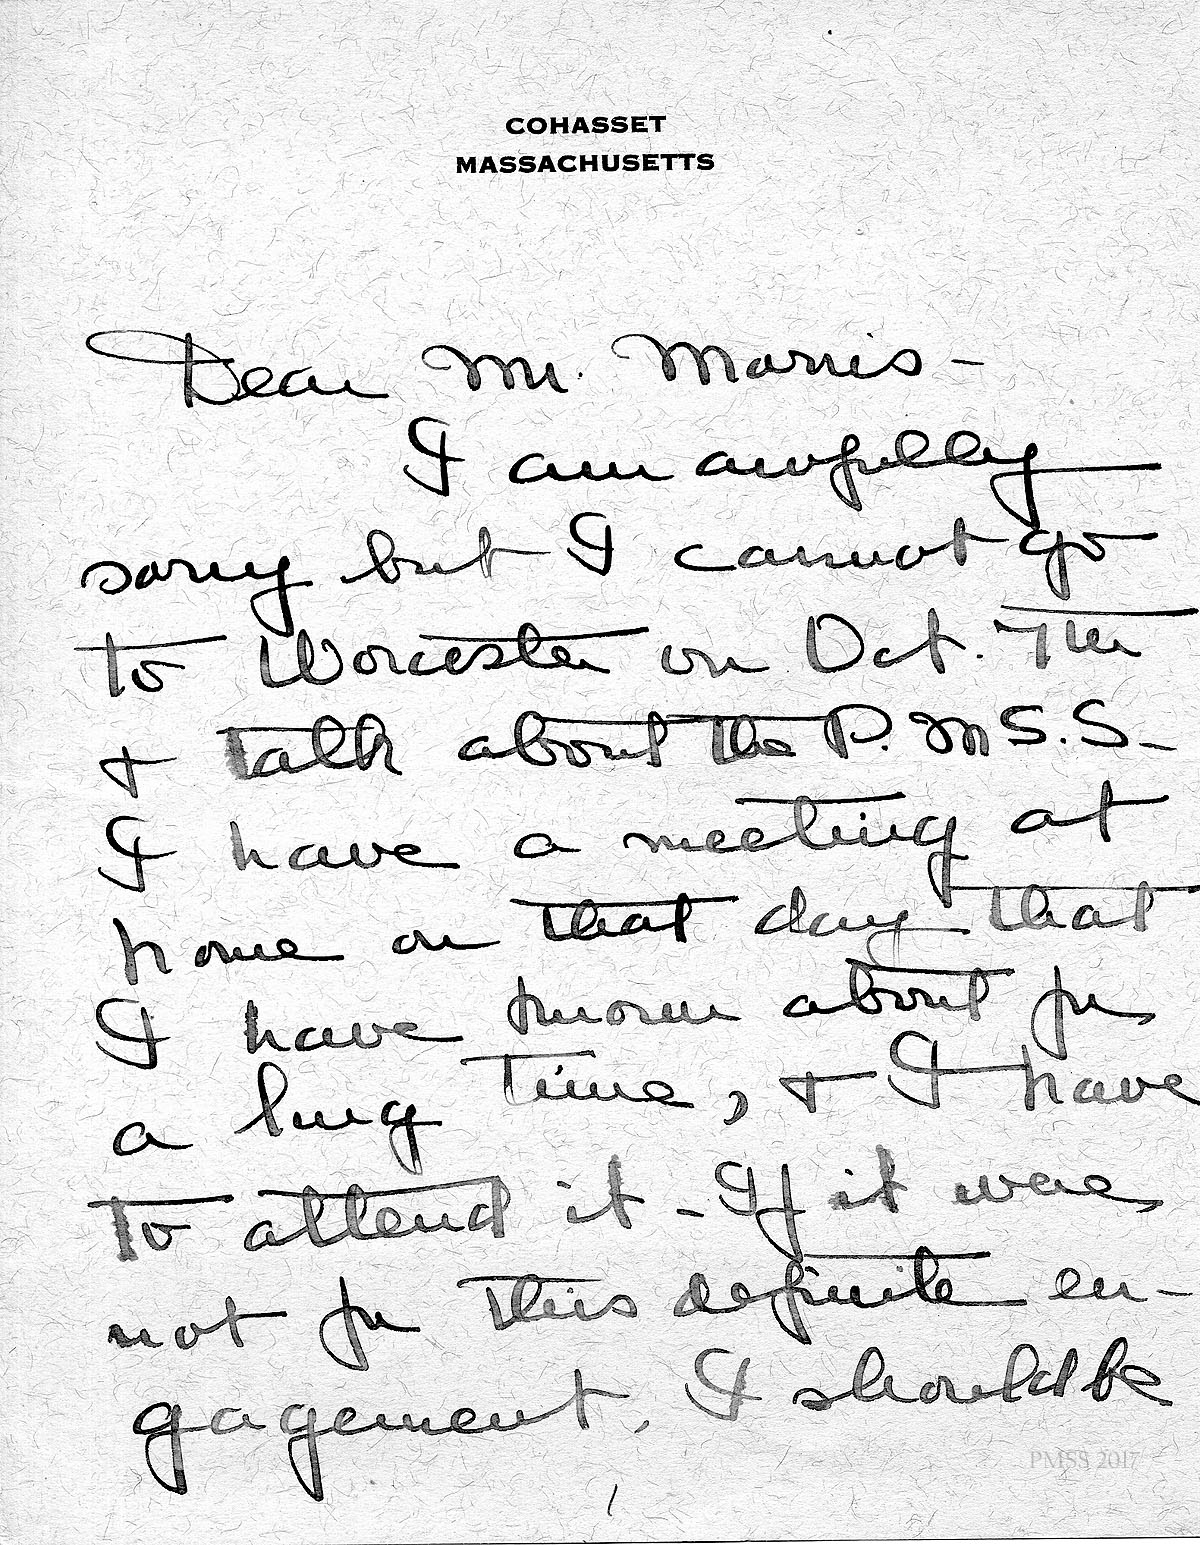 COHASSET
MASSACHUSETTS
Dear Mr. Morris-
I am awfully
sorry but I cannot go
to Worcester on Oct. 7th
& talk about the P. M S. S.-
I have a meeting at
home on that day that
I have known about for
a long time, & I have
to attend it - If it were
not for this definite en-
gagement, I should be
PMSS 2017